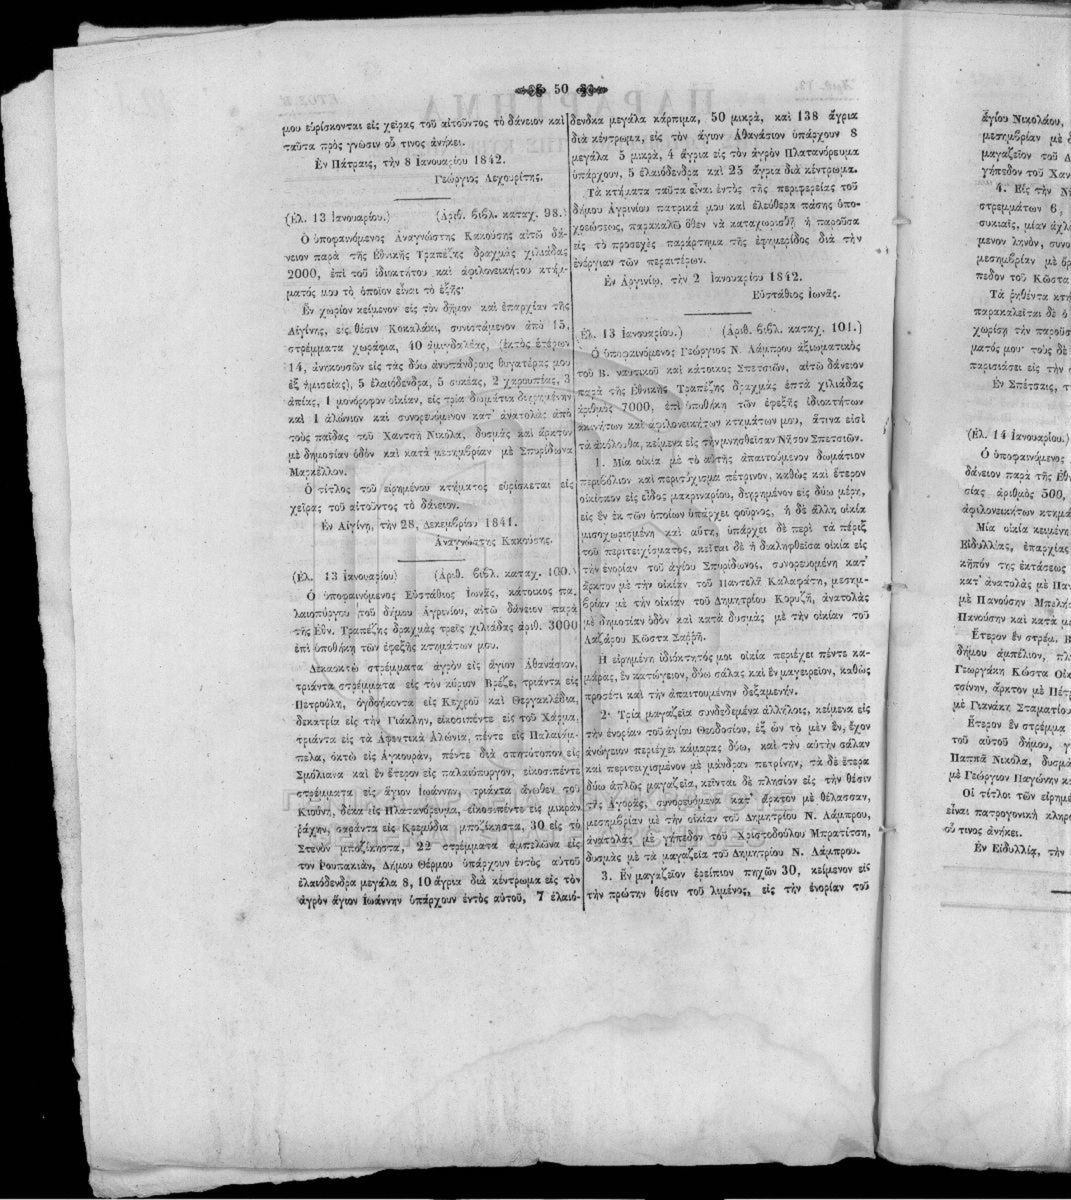 50
μου εὑρίσκονται εἰς χεῖρας τοῦ αἰτοῦντος τὸ δάνειον καὶ
ταῦτα πρὸς γνῶσιν οὗ τινος ἀνήκει.
Ἐν Πάτραις, τὴν 8 Ἰανουαρίου 1842.
Γεώργιος Λεχουρίτης.
(Ἐλ. 13 Ἰανουαρίου.) (Ἀριθ. βιβλ. καταχ. 98.)
Ὁ ὑποφαινόμενος Ἀναγνώστης Κακούσης αἰτῶ δά-
νειον παρὰ τῆς Ἐθνικῆς Τραπέζης δραχμὰς χιλιάδας
2000, ἐπὶ τοῦ ἰδιοκτήτου καὶ ἀφιλονεικήτου κτήμ-
ματός μου τὸ ὁποῖον εἶναι τὸ ἑξῆς·
Ἓν χωρίον κείμενον εἰς τὸν δῆμον καὶ ἐπαρχίαν τῆς
Αἰγίνης, εἰς θέσιν Κοκαλάκι, συνιστάμενον ἀπὸ 15,
στρέμματα χωράφια, 40 ἀμυγδαλέας, (ἐκτὸς ἑτέρων
14, ἀνηκουσῶν εἰς τὰς δύω ἀνυπάνδρους θυγατέρας μου
ἐξ ἡμισείας), 5 ἐλαιόδενδρα, 5 συκέας, 2 χαρουπίας, 3
ἀπίας, 1 μονόροφον οἰκίαν, εἰς τρία δωμάτια διῃρημένην
καὶ 1 ἁλώνιον καὶ συνορευόμενον κατ' ἀνατολὰς ἀπὸ
τοὺς παῖδας τοῦ Χαντσῆ Νικόλα, δυσμὰς καὶ ἄρκτον
μὲ δημοσίαν ὁδὸν καὶ κατὰ μεσημβρίαν μὲ Σπυρίδωνα
Μαρκέλλον.
Ὁ τίτλος τοῦ εἰρημένου κτήματος εὑρίσκεται εἰς
χεῖρας τοῦ αἰτοῦντος τὸ δάνειον.
Ἐν Αἰγίνῃ, τὴν 28, Δεκεμβρίου 1841.
Ἀναγνώστης Κακούσης.
(Ἐλ. 13 Ἰανουαρίου) (Ἀριθ. βιβλ. καταχ. 100.)
Ὁ ὑποφαινόμενος Εὐστάθιος Ἰωνᾶς, κάτοικος πα-
λαιοπύργου τοῦ δήμου Ἀγρινίου, αἰτῶ δάνειον παρὰ
τῆς Ἐθν. Τραπέζης δραχμὰς τρεῖς χιλιάδας ἀριθ. 3000
ἐπὶ ὑποθήκῃ τῶν ἐφεξῆς κτημάτων μου.
Δεκαοκτὼ στρέμματα ἀγρὸν εἰς ἅγιον Ἀθανάσιον,
τριάντα στρέμματα εἰς τὸν κύριον Βρέζε, τριάντα εἰς
Πετρούλη, ὀγδοήκοντα εἰς Κεχροῦ καὶ Θεργακλέδια,
δεκατρία εἰς τὴν Γιάκλην, εἰκοσιπέντε εἰς τοῦ Χάρμα,
τριάντα εἰς τὰ Ἀφεντικὰ Ἁλώνια, πέντε εἰς Παλαιάμ-
πελα, ὀκτὼ εἰς Ἀγκουρὰν, πέντε διὰ σπητότοπον εἰς
Σμόλιανα καὶ ἓν ἕτερον εἰς παλαιόπυργον, εἰκοσιπέντε
στρέμματα εἰς ἅγιον Ἰωάννην, τριάντα ἄνωθεν τοῦ
Κιούνη, δέκα εἰς Πλατανόρευμα, εἰκοσιπέντε εἰς μικρὰν
ῥάχην, σαράντα εἰς Κρεμύδια μποζίκηστα, 30 εἰς τὸ
Στενὸν μποζίκηστα, 22 στρέμματα ἀμπελῶνα εἰς
τὸν Ῥουπακιᾶν, Δήμου Θέρμου ὑπάρχουν ἐντὸς αὐτοῦ
ἐλαιόδενδρα μεγάλα 8, 10 ἄγρια διὰ κέντρωμα εἰς τὸν
ἀγρὸν ἅγιον Ἰωάννην ὑπάρχουν ἐντὸς αὐτοῦ, 7 ἐλαιό-
δενδρα μεγάλα κάρπιμα, 50 μικρὰ, καὶ 138 ἄγρια
διὰ κέντρωμα, εἰς τὸν ἅγιον Ἀθανάσιον ὑπάρχουν 8
μεγάλα 5 μικρὰ, 4 ἄγρια εἰς τὸν ἀγρὸν Πλατανόρευμα
ὑπάρχουν, 5 ἐλαιόδενδρα καὶ 25 ἄγρια διὰ κέντρωμα.
Τὰ κτήματα ταῦτα εἶναι ἐντὸς τῆς περιφερείας τοῦ
δήμου Ἀγρινίου πατρικά μου καὶ ἐλεύθερα πάσης ὑπο-
χρεώσεως, παρακαλῶ ὅθεν νὰ καταχωρισθῇ ἡ παροῦσα
εἰς τὸ προσεχὲς παράρτημα τῆς ἐφημερίδος διὰ τὴν
ἐνέργιαν τῶν περαιτέρων.
Ἐν Ἀργινίῳ, τὴν 2 Ἰανουαρίου 1842.
Εὐστάθιος Ἰωνᾶς.
(Ἐλ. 13 Ἰανουαρίου.) (Ἀριθ. βιβλ. καταχ. 101.)
Ὁ ὑποφαινόμενος Γεώργιος Ν. Λάμπρου ἀξιωματικὸς
τοῦ Β. ναυτικοῦ καὶ κάτοικος Σπετσιῶν, αἰτῶ δάνειον
παρὰ τῆς Ἐθνικῆς Τραπέζης δραχμὰς ἑπτὰ χιλιάδας
ἀριθμὸς 7000, ἐπὶ ὑποθήκῃ τῶν ἐφεξῆς ἰδιοκτήτων
ἀκινήτων καὶ ἀφιλονεικήτων κτημάτων μου, ἅτινα εἰσὶ
τὰ ἀκόλουθα, κείμενα εἰς τὴν μνησθεῖσαν Νῆσον Σπετσιῶν.
1. Μία οἰκία μὲ τὸ αὐτῆς ἀπαιτούμενον δωμάτιον
περιβόλιον καὶ περιτύχισμα πέτρινον, καθὼς καὶ ἕτερον
οἰκίσκον εἰς εἶδος μακριναρίου, διῃρημένον εἰς δύω μέρη,
εἰς ἓν ἐκ τῶν ὁποίων ὑπάρχει φοῦρνος, ἡ δὲ ἄλλη οἰκία
μισοχωρισμένη καὶ αὕτη, ὑπάρχει δὲ περὶ τὰ πέριξ
τοῦ περιτειχίσματος, κεῖται δὲ ἡ διαληφθεῖσα οἰκία εἰς
τὴν ἐνορίαν τοῦ ἁγίου Σπυρίδωνος, συνορευομένη κατ'
ἄρκτον μὲ τὴν οἰκίαν τοῦ Παντελῆ Καλαφάτη, μεσημ-
βρίαν μὲ τὴν οἰκίαν τοῦ Δημητρίου Κορυζῆ, ἀνατολὰς
μὲ δημοσίαν ὁδὸν καὶ κατὰ δυσμὰς μὲ τὴν οἰκίαν τοῦ
Λαζάρου Κώστα Σαῤῥῆ.
Ἡ εἰρημένη ἰδιόκτητός μοι οἰκία περιέχει πέντε κα-
μάρας, ἓν κατώγειον, δύω σάλας καὶ ἓν μαγειρεῖον, καθὼς
προσέτι καὶ τὴν ἀπαιτουμένην δεξαμενήν.
2. Τρία μαγαζεῖα συνδεδεμένα ἀλλήλοις, κείμενα εἰς
τὴν ἐνορίαν τοῦ ἁγίου Θεοδοσίου, ἐξ ὧν τὸ μὲν ἓν, ἔχον
ἀνώγειον περιέχει κάμαρας δύω, καὶ τὴν αὐτὴν σάλαν
καὶ περιτειχισμένον μὲ μάνδραν πετρίνην, τὰ δὲ ἕτερα
δύω ἁπλῶς μαγαζεῖα, κεῖνται δὲ πλησίον εἰς τὴν θέσιν
τῆς Ἀγορᾶς, συνορευόμενα κατ' ἄρκτον μὲ θάλασσαν,
μεσημβρίαν μὲ τὴν οἰκίαν τοῦ Δημητρίου Ν. Λάμπρου,
ἀνατολὰς μὲ γήπεδον τοῦ Χριστοδούλου Μπρατίτση,
δυσμὰς μὲ τὰ μαγαζεῖα τοῦ Δημητρίου Ν. Λάμπρου.
3. Ἓν μαγαζεῖον ἐρείπιον πηχῶν 30, κείμενον εἰς
τὴν πρώτην θέσιν τοῦ λιμένος, εἰς τὴν ἐνορίαν τοῦ
ἁγίου Νικολάου,
μεσημβρίαν μὲ
μαγαζεῖον τοῦ
γήπεδον τοῦ
4. Εἰς τὴν
στρεμμάτων 6,
συκιαῖς, μίαν
μενον ληνὸν,
μεσημβρίαν μὲ
πεδον τοῦ Κώστα
Τὰ ῥηθέντα
παρακαλεῖται δὲ ὁ
χωρίσῃ τὴν
ματός μου· τοὺς δὲ
παρισιάσει εἰς τὴν
Ἐν Σπέτσαις,
(Ἐλ. 14 Ἰανουαρίου.)
Ὁ ὑποφαινόμενος
δάνειον παρὰ τῆς
σίας ἀριθμὸς 500,
ἀφιλονεικήτων
Μία οἰκία κειμένη
Εἰδυλλίας, ἐπαρχίας
κῆπόν της ἐκτάσεως
κατ' ἀνατολὰς μὲ
μὲ Πανούσην
Πανούσην καὶ κατὰ
Ἕτερον ἓν στρέμ.
δήμου ἀμπέλιον,
Γεωργάκη Κώστα
τσίνην, ἄρκτον μὲ
μὲ Γιανάκη Σταματίου
Ἕτερον ἓν στρέμμα
τοῦ αὐτοῦ δήμου,
Παππᾶ Νικόλα,
μὲ Γεώργιον Παγώνην
Οἱ τίτλοι τῶν
εἶναι πατρογονικὴ
οὗ τινος ἀνήκει.
Ἐν Εἰδυλλίᾳ, τὴν